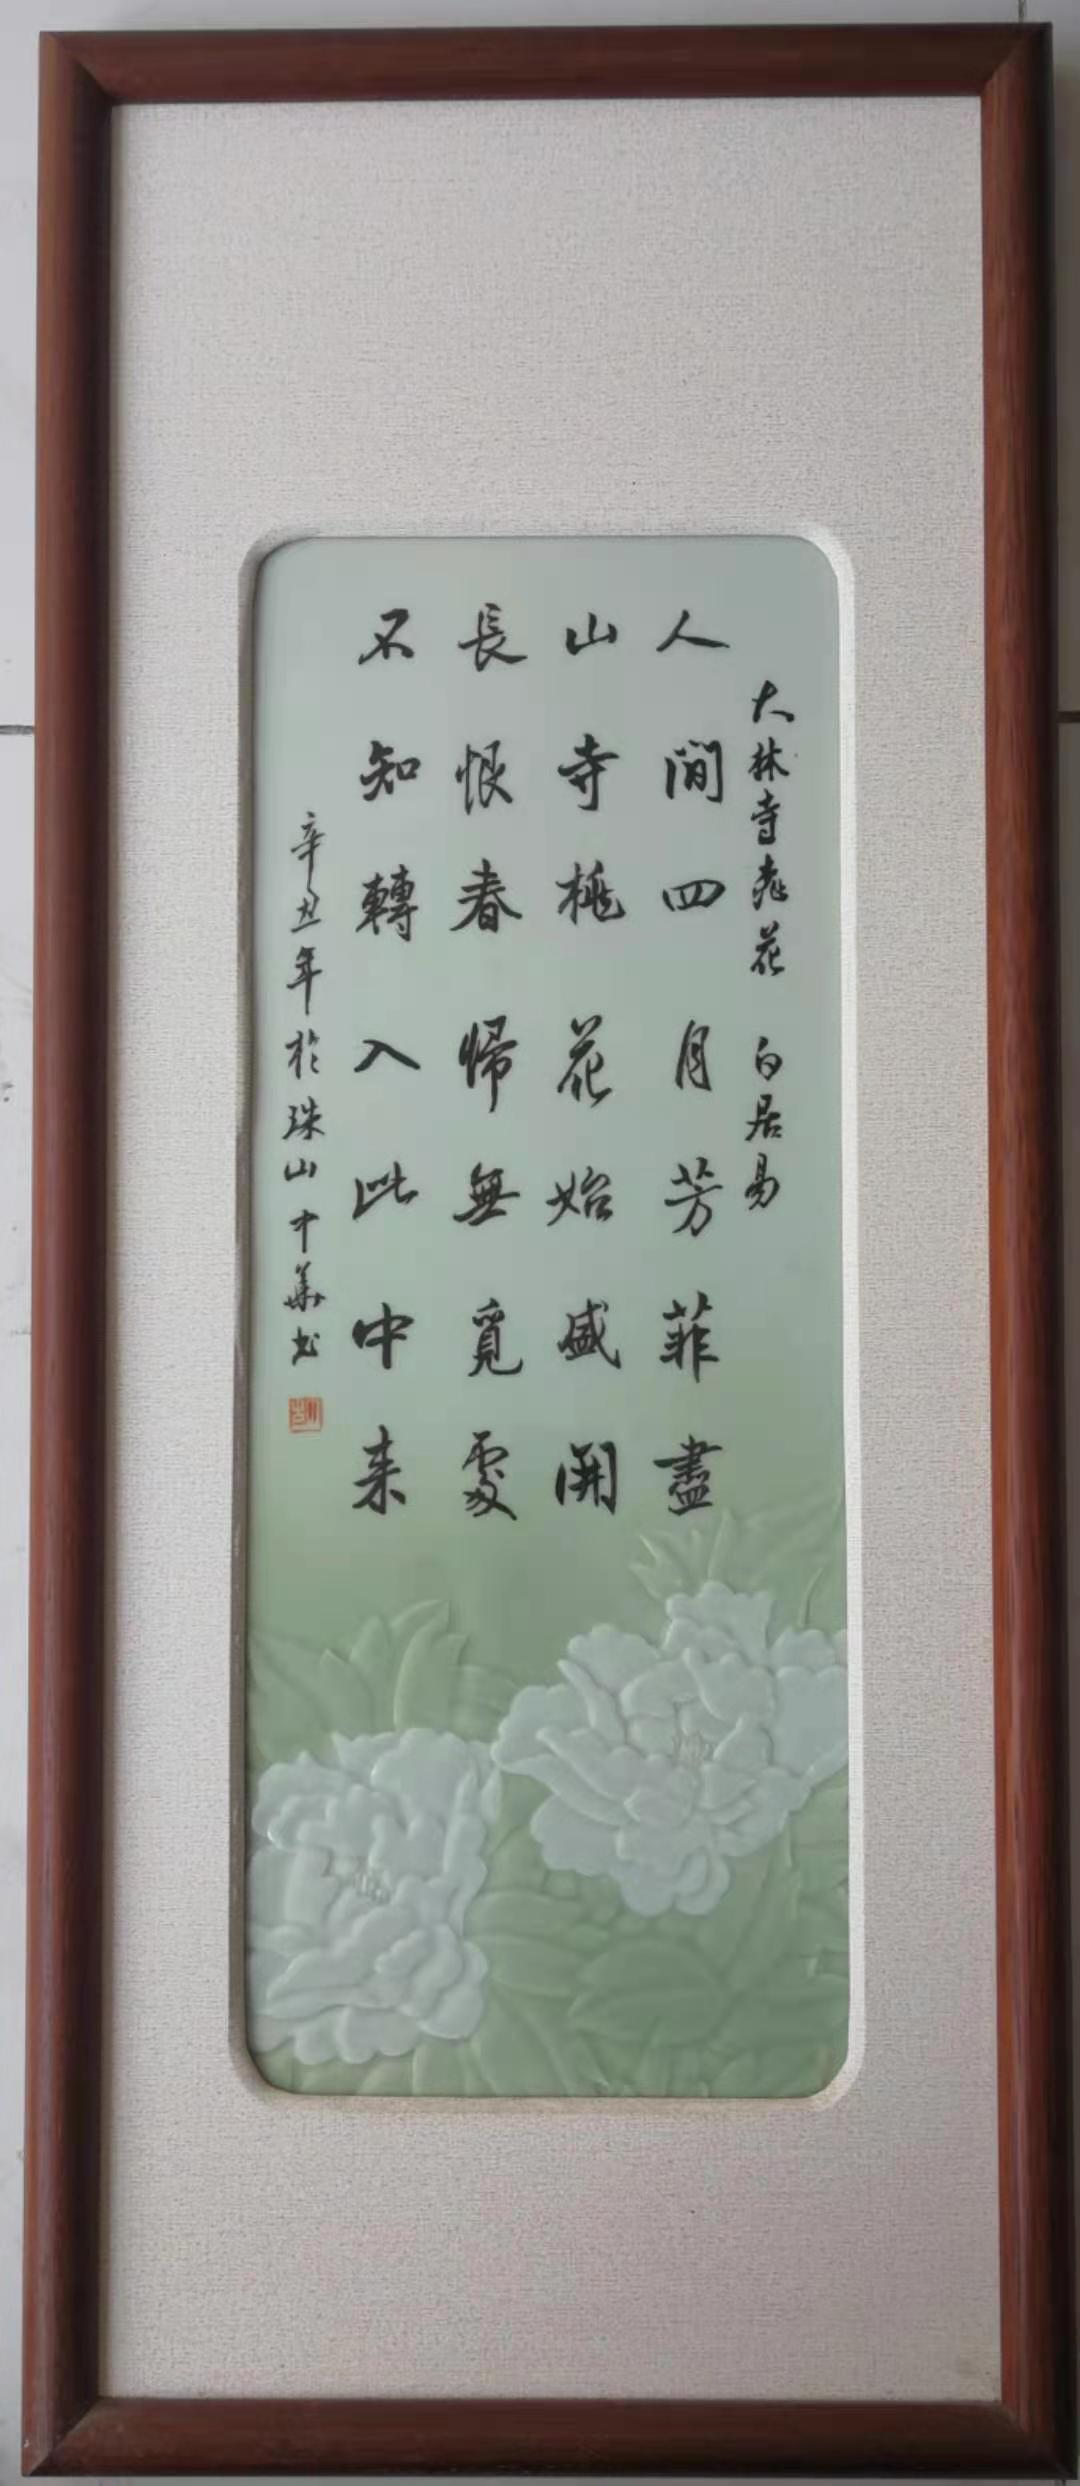 大林寺桃花 白居易
人間四月芳菲盡
山寺桃花始盛開
長恨春歸無覓處
不知轉入此中来
辛丑年於珠山中華书